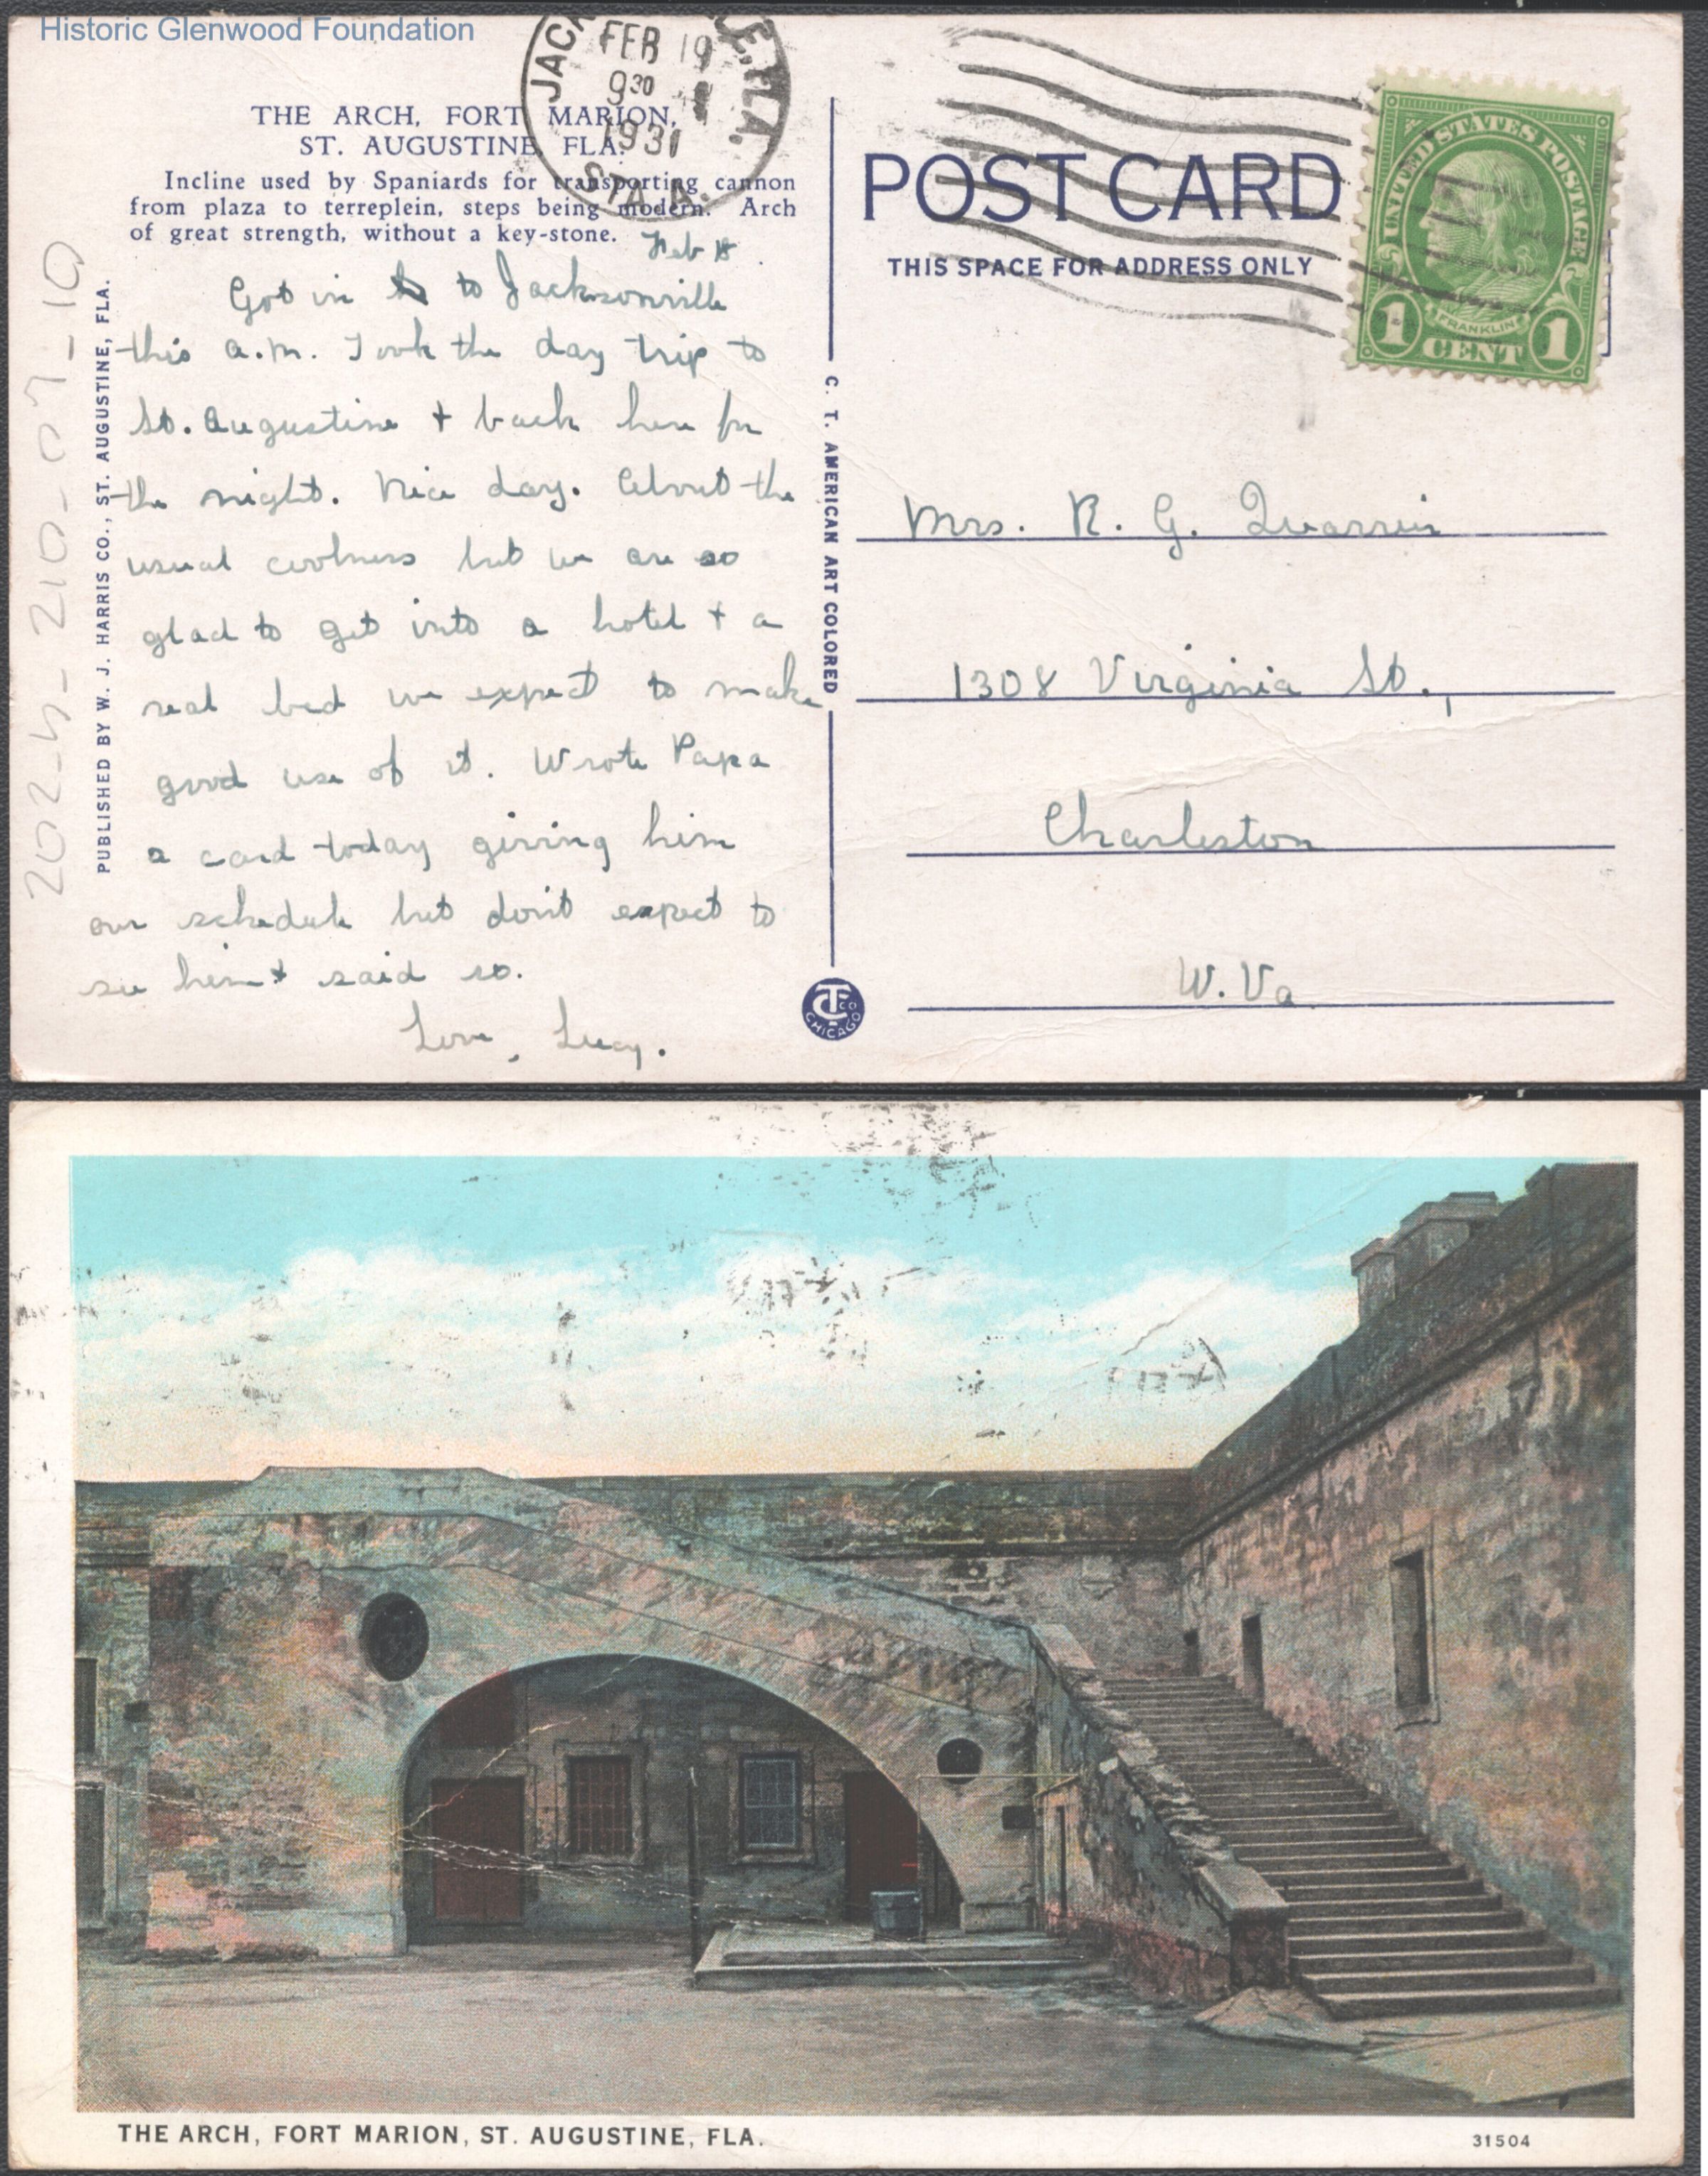 Historic Glenwood Foundation
FEB 19
9 30
1931
E, FLA.
STA. A.
THE ARCH, FORT MARION,
ST. AUGUSTINE, FLA.
Incline used by Spaniards for transporting cannon
from plaza to terreplein, steps being modern. Arch
of great strength, without a key-stone.
Feb 18.
Got in to Jacksonville
this a.m. Took the day trip to
St. Augustine + back here for
the night. Nice day. About the
usual coolness but we are so
glad to get into a hotel + a
real bed we expect to make
good use of it. Wrote Papa
a card today giving him
our schedule but don't expect to
see him + said so.
Love, Lucy.
PUBLISHED BY W. J. HARRIS CO., ST. AUGUSTINE, FLA.
C. T. AMERICAN ART COLORED
CT CO
CHICAGO
POST CARD
THIS SPACE FOR ADDRESS ONLY
UNITED STATES POSTAGE
FRANKLIN
1 CENT 1
Mrs. R. G. Quarrier
1308 Virginia St.,
Charleston
W. Va
THE ARCH, FORT MARION, ST. AUGUSTINE, FLA.
31504